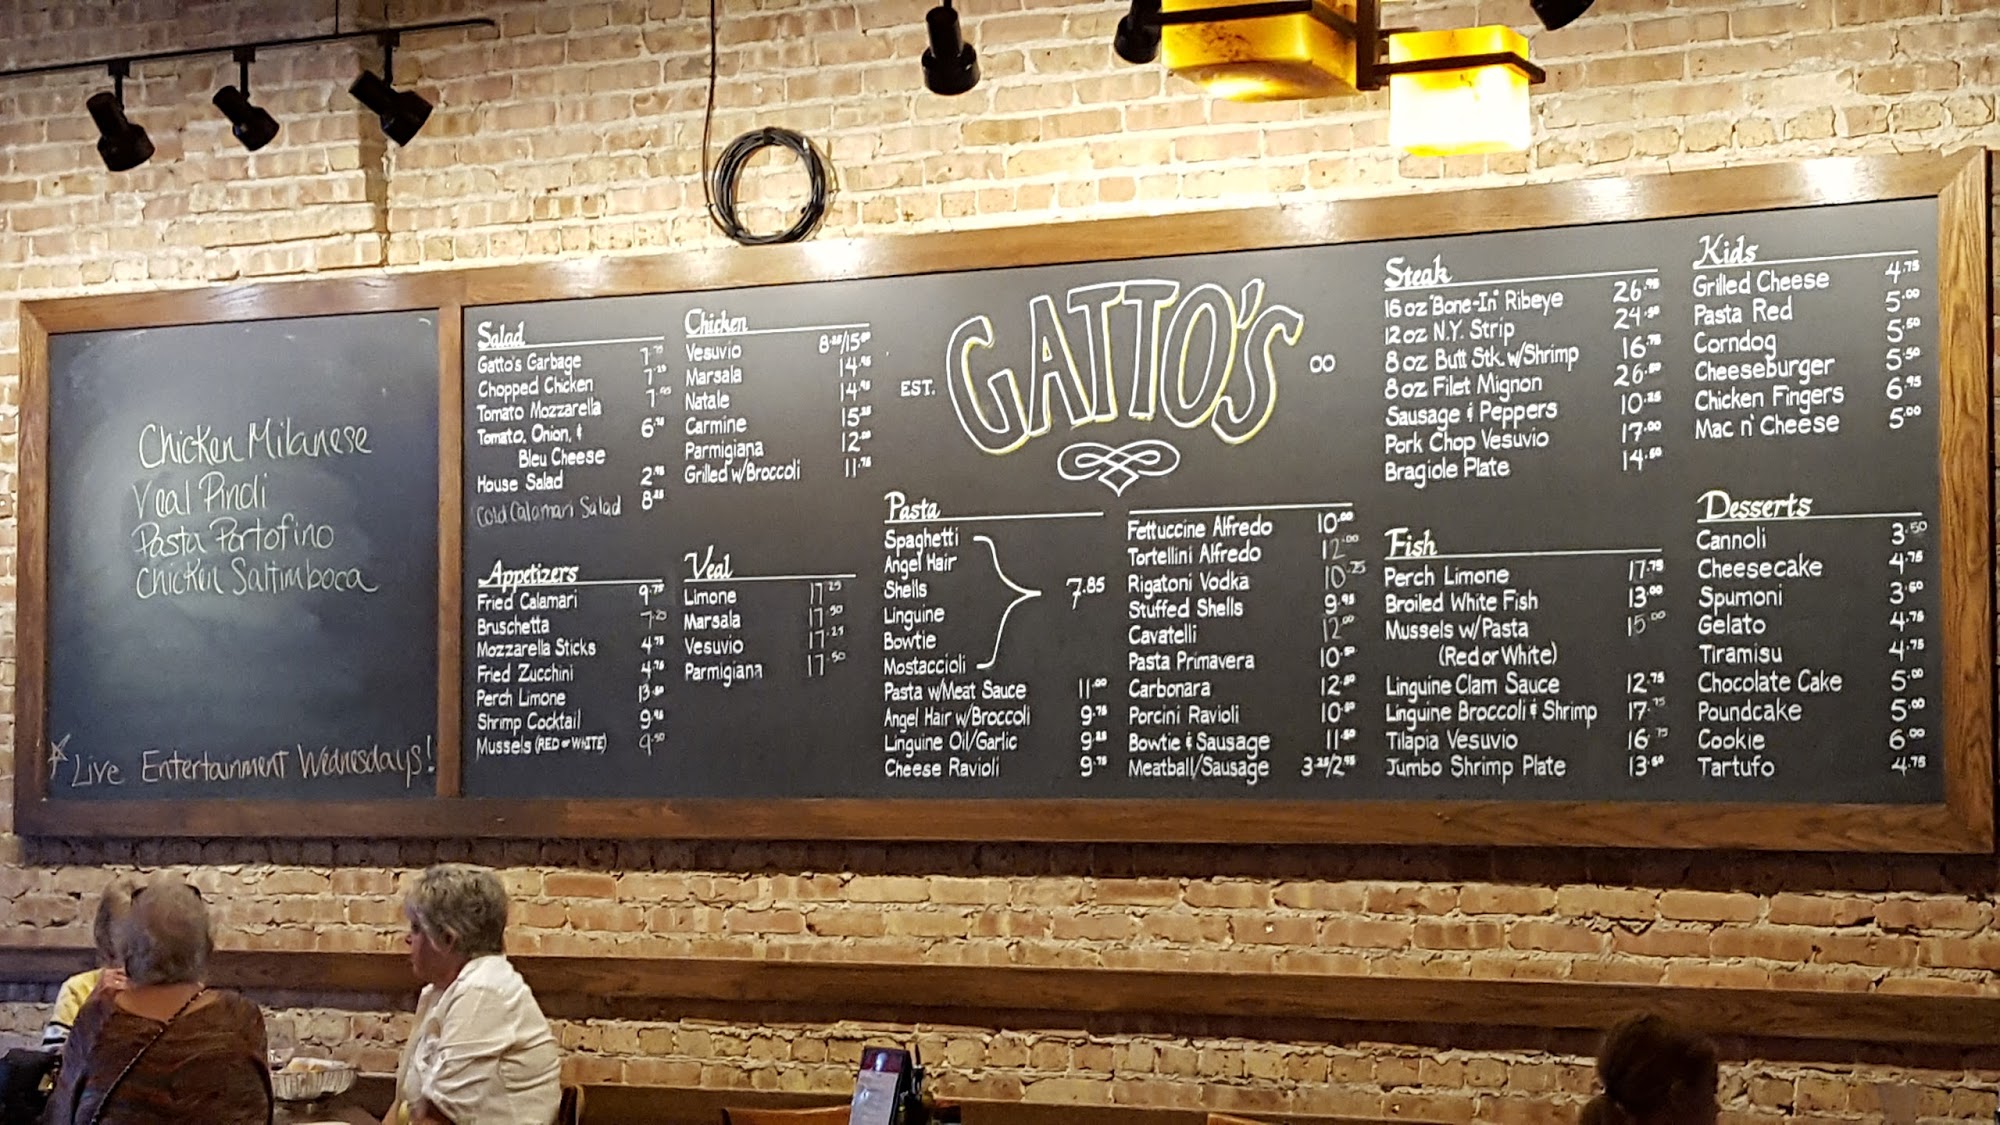 Chicken Milanese
Veal Pinoli
Pasta Portofino
Chicken Saltimboca
Live Entertainment Wednesdays!
Salad
Gatto's Garbage 7.75
Chopped Chicken 7.25
Tomato Mozzarella 7.95
Tomato, Onion, & 6.95
Bleu Cheese
House Salad 2.95
Cold Calamari Salad 8.25
Appetizers
Fried Calamari 9.75
Bruschetta 7.25
Mozzarella Sticks 4.75
Fried Zucchini 4.75
Perch Limone 13.50
Shrimp Cocktail 9.95
Mussels (RED or WHITE) 9.50
Chicken
Vesuvio 8.25/15.00
Marsala 14.95
Natale 14.95
Carmine 15.25
Parmigiana 12.00
Grilled w/Broccoli 11.75
Veal
Limone 17.25
Marsala 17.50
Vesuvio 17.25
Parmigiana 17.50
EST. GATTO'S 00
Pasta
Spaghetti
Angel Hair
Shells
Linguine
Bowtie
Mostaccioli
7.85
Pasta w/Meat Sauce 11.00
Angel Hair w/Broccoli 9.75
Linguine Oil/Garlic 9.25
Cheese Ravioli 9.75
Fettuccine Alfredo 10.00
Tortellini Alfredo 12.00
Rigatoni Vodka 10.75
Stuffed Shells 9.95
Cavatelli 12.00
Pasta Primavera 10.50
Carbonara 12.50
Porcini Ravioli 10.50
Bowtie & Sausage 11.50
Meatball/Sausage 3.25/2.95
Steak
16 oz "Bone-In" Ribeye 26.95
12 oz N.Y. Strip 24.50
8 oz Butt Stk. w/Shrimp 16.75
8 oz Filet Mignon 26.50
Sausage & Peppers 10.25
Pork Chop Vesuvio 17.00
Bragiole Plate 14.50
Fish
Perch Limone 17.75
Broiled White Fish 13.00
Mussels w/Pasta 15.00
(Red or White)
Linguine Clam Sauce 12.75
Linguine Broccoli & Shrimp 17.75
Tilapia Vesuvio 16.75
Jumbo Shrimp Plate 13.50
Kids
Grilled Cheese 4.75
Pasta Red 5.00
Corndog 5.50
Cheeseburger 5.50
Chicken Fingers 6.95
Mac n' Cheese 5.00
Desserts
Cannoli 3.50
Cheesecake 4.75
Spumoni 3.50
Gelato 4.75
Tiramisu 4.75
Chocolate Cake 5.00
Poundcake 5.00
Cookie 6.00
Tartufo 4.75